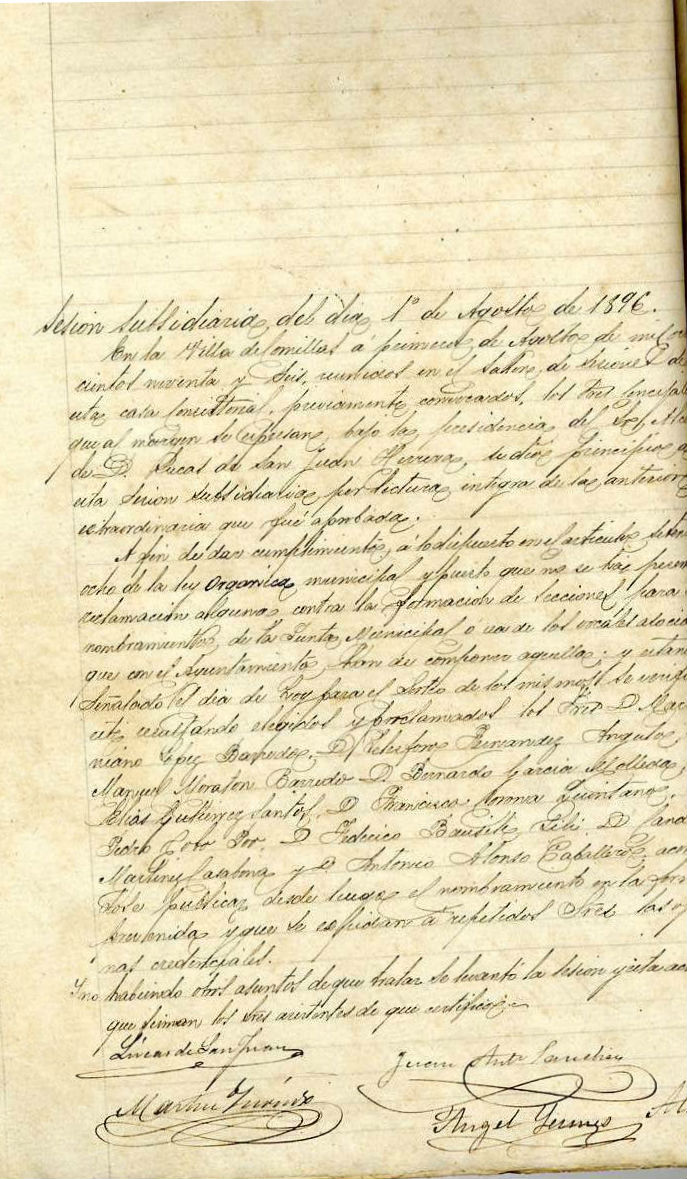 Sesion Subsidiaria del dia 1º de Agosto de 1896.
En la Villa de Comillas á primero de Agosto de mil
cientos noventa y Seis, reunidos en el Salon de Sesiones de
esta casa Consistorial, previamente convocados, los Sres
que al margen se espresan, bajo la presidencia del Sr. Alcal
de D. Lucas de San Juan Herrera, se dió principio á
esta Sesion Subsidiaria por lectura integra de la anterior
extraordinaria que fué aprobada.
A fin de dar cumplimiento á lo dispuesto en el articulo
ocho de la ley Organica municipal y puesto que no se ha presen
reclamacion alguna contra la formacion de Secciones para
nombramiento de la Junta Municipal ó sea de los vocales asocia
que con el Ayuntamiento han de componer aquella; y estan
Señalado el dia de hoy para el Sorteo de los mismos se verifi
este resultando elegidos y proclamados los Sres D.
Lopez Barredo, D Telesforo Fernandez Angulo,
Manuel Moraton Barredo D. Bernardo Garcia Molleda,
Elias Gutierrez Santos, D Francisco Quintana,
Pedro Cobo D Federico D
Martinez Casabona y D Antonio Alonso Caballero;
dose publicar desde luego el nombramiento en la for
prevenida y que se espidan á repetidos Sres las
nas credenciales.
Y no habiendo otros asuntos de que tratar se levantó la sesion y esta
que firman los Sres asistentes de que certifico.
Lucas de San Juan
Juan Antº Sanchez
Martin
Angel